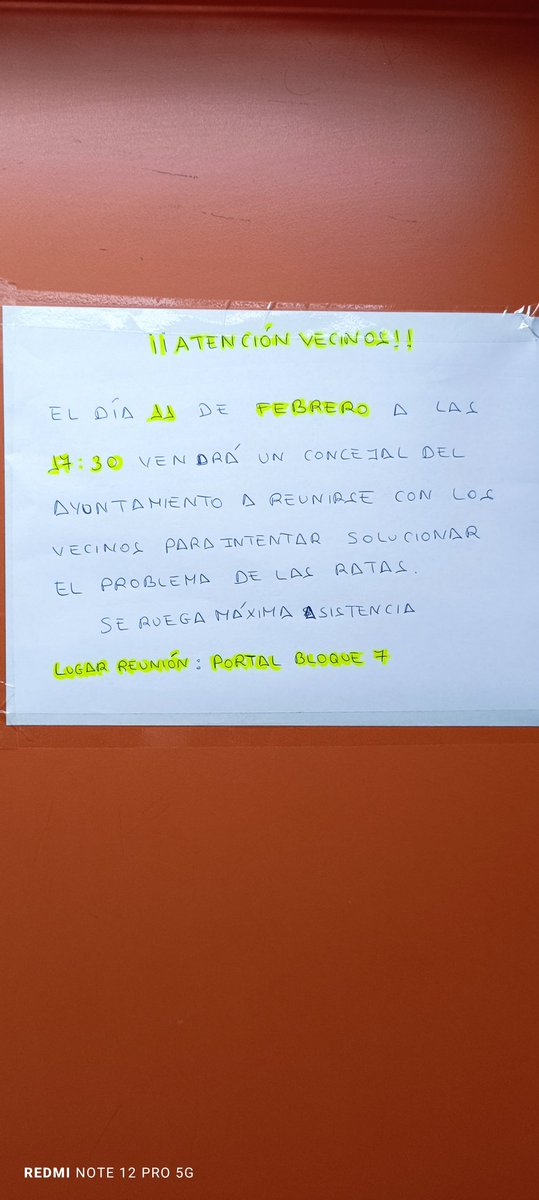 ¡¡ATENCIÓN VECINOS!!
EL DÍA 11 DE FEBRERO A LAS
17:30 VENDRÁ UN CONCEJAL DEL
AYUNTAMIENTO A REUNIRSE CON LOS
VECINOS PARA INTENTAR SOLUCIONAR
EL PROBLEMA DE LAS RATAS.
SE RUEGA MÁXIMA ASISTENCIA
LUGAR REUNIÓN: PORTAL BLOQUE 7
REDMI NOTE 12 PRO 5G